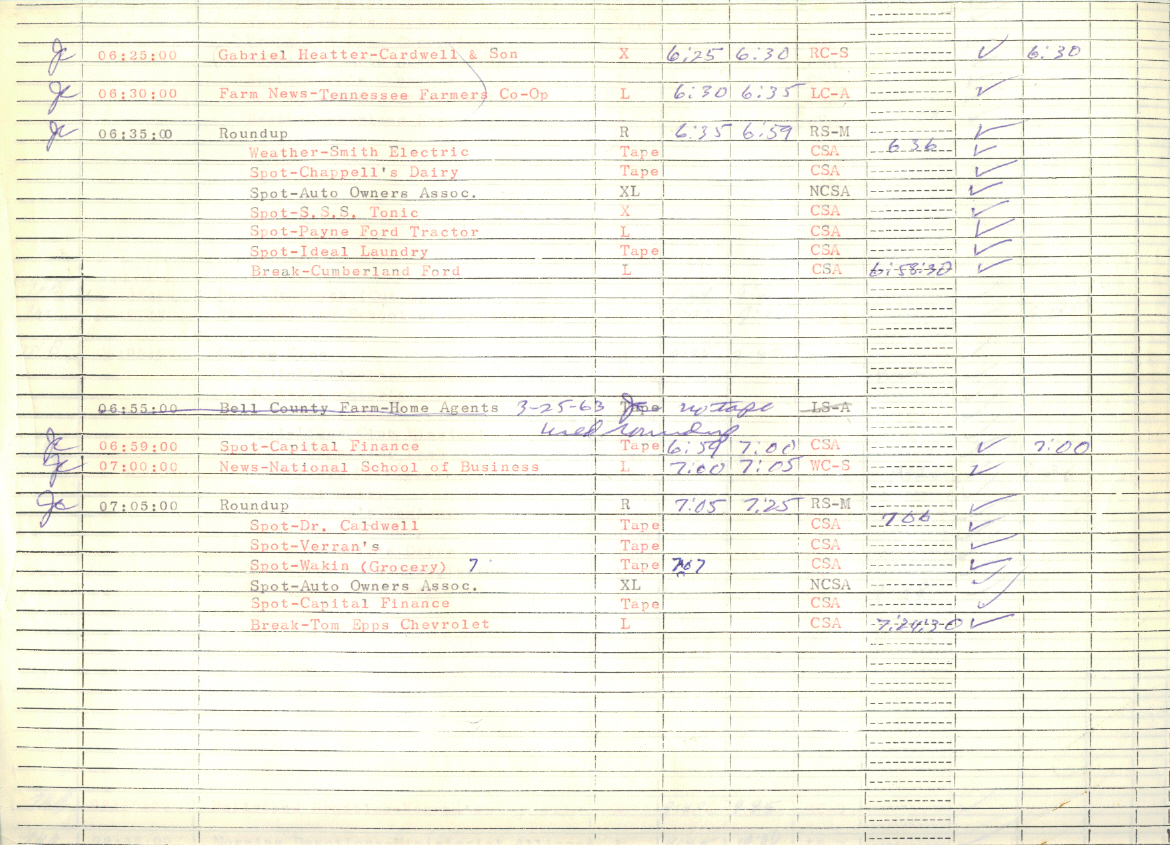 Jc 06:25:00 Gabriel Heatter-Cardwell & Son X 6:25 6:30 RC-S ✓ 6:30
Jc 06:30:00 Farm News-Tennessee Farmers Co-Op L 6:30 6:35 LC-A ✓
Jc 06:35:00 Roundup R 6:35 6:59 RS-M ✓
Weather-Smith Electric Tape CSA 6 36 ✓
Spot-Chappell's Dairy Tape CSA ✓
Spot-Auto Owners Assoc. XL NCSA ✓
Spot-S.S.S. Tonic X CSA ✓
Spot-Payne Ford Tractor L CSA ✓
Spot-Ideal Laundry Tape CSA ✓
Break-Cumberland Ford L CSA 6:58:30 ✓
06:55:00 Bell County Farm-Home Agents 3-25-63 Tape no tape LS-A
used roundup
Jc 06:59:00 Spot-Capital Finance Tape 6:59 7:00 CSA ✓ 7:00
Jc 07:00:00 News-National School of Business L 7:00 7:05 WC-S ✓
Jc 07:05:00 Roundup R 7:05 7:25 RS-M ✓
Spot-Dr. Caldwell Tape CSA 7 06 ✓
Spot-Verran's Tape CSA ✓
Spot-Wakin (Grocery) 7 Tape 707 CSA ✓
Spot-Auto Owners Assoc. XL NCSA ✓
Spot-Capital Finance Tape CSA ✓
Break-Tom Epps Chevrolet L CSA 7:24:30 ✓